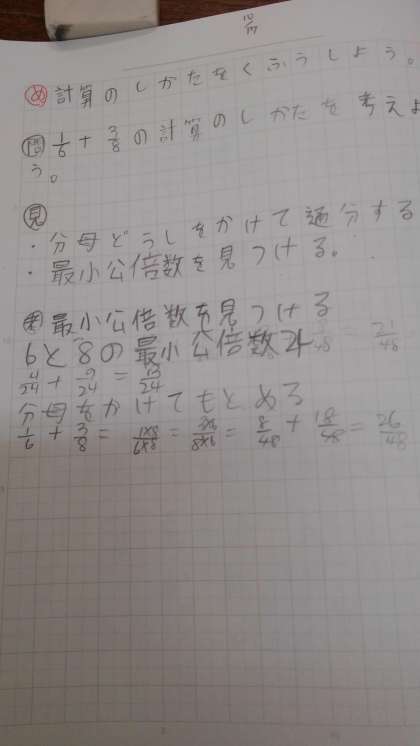 10/17
め 計算のしかたをくふうしよう。
問 1/6 + 3/8 の計算のしかたを考えよ
う。
見
・分母どうしをかけて通分する
・最小公倍数を見つける。
最小公倍数を見つける
6と8の最小公倍数24
4/24 + 9/24 = 13/24
分母をかけてもとめる
1/6 + 3/8 = 1×8/6×8 = 3×6/8×6 = 8/48 + 18/48 = 26/48